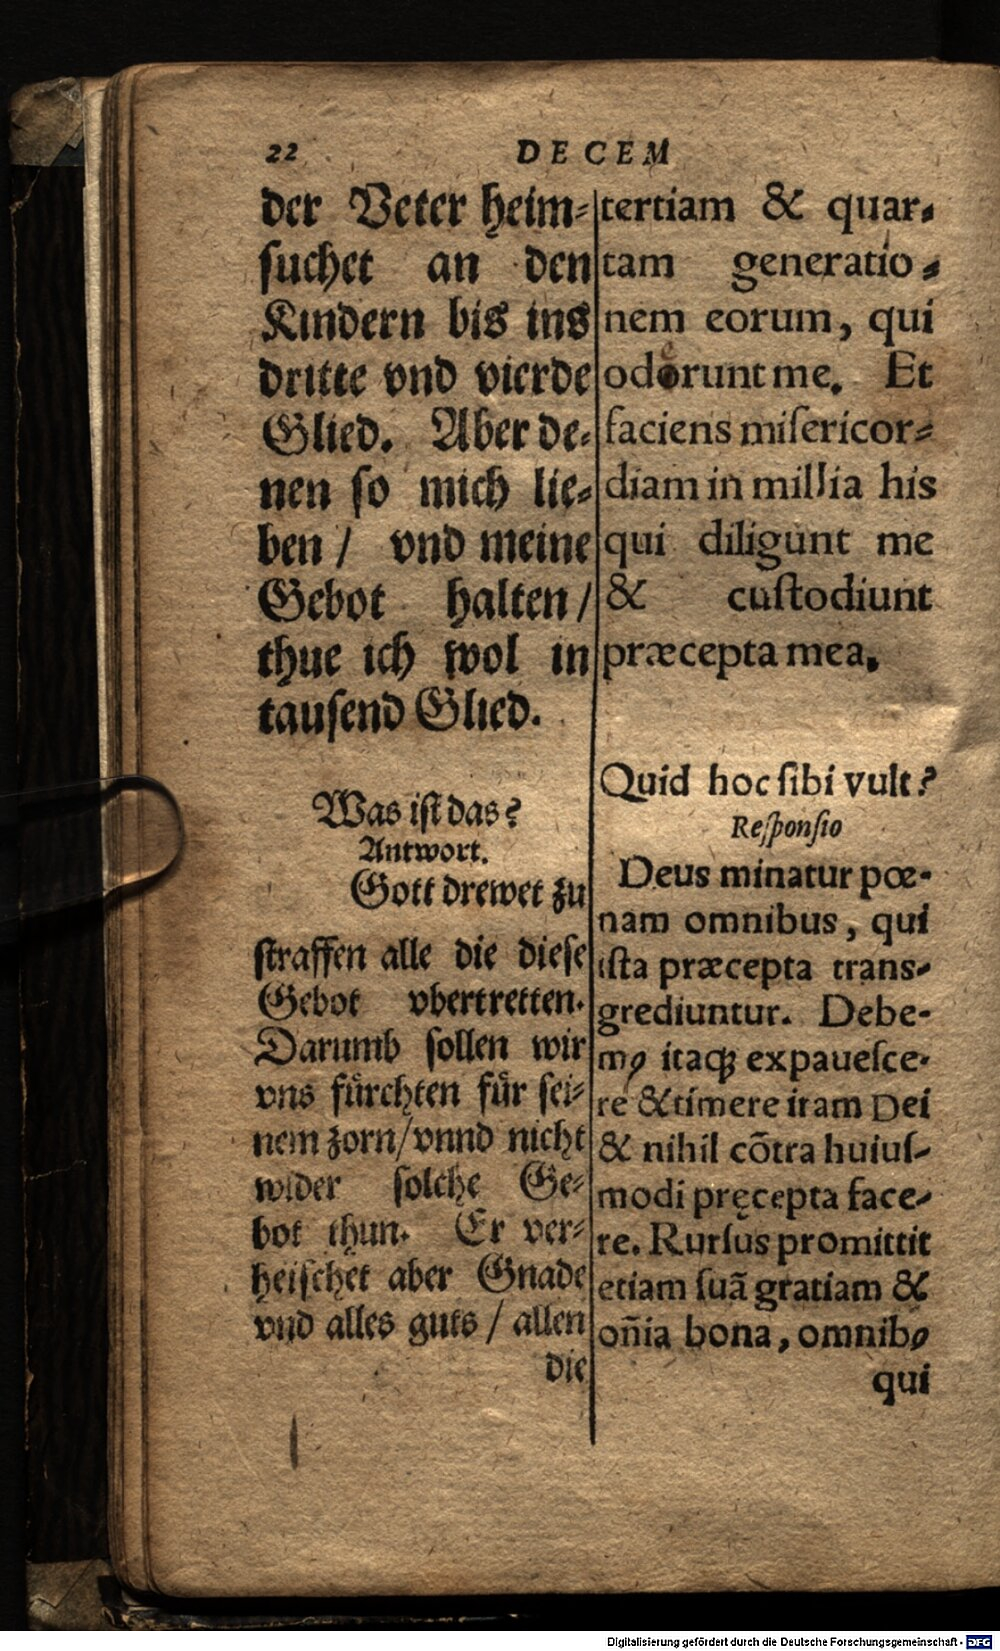 22 DECEM
der Veter heim-
suchet an den
Kindern bis ins
dritte vnd vierde
Glied. Aber de-
nen so mich lie-
ben / vnd meine
Gebot halten /
thue ich wol in
tausend Glied.
Was ist das?
Antwort.
Gott drewet zu
straffen alle die diese
Gebot vbertretten.
Darumb sollen wir
vns fuͤrchten fuͤr sei-
nem zorn / vnnd nicht
wider solche Ge-
bot thun. Er ver-
heischet aber Gnade
vnd alles guts / allen
die
tertiam & quar-
tam generatio-
nem eorum, qui
oderunt me. Et
faciens miſericor-
diam in millia his
qui diligunt me
& cuſtodiunt
præcepta mea.
Quid hoc ſibi vult?
Reſponſio
Deus minatur pœ-
nam omnibus, qui
iſta præcepta trans-
grediuntur. Debe-
mꝰ itaqꝫ expaueſce-
re & timere iram Dei
& nihil cõtra huiuſ-
modi pręcepta face-
re. Rurſus promittit
etiam ſuã gratiam &
oñia bona, omnibꝰ
qui
Digitalisierung gefördert durch die Deutsche Forschungsgemeinschaft - DFG